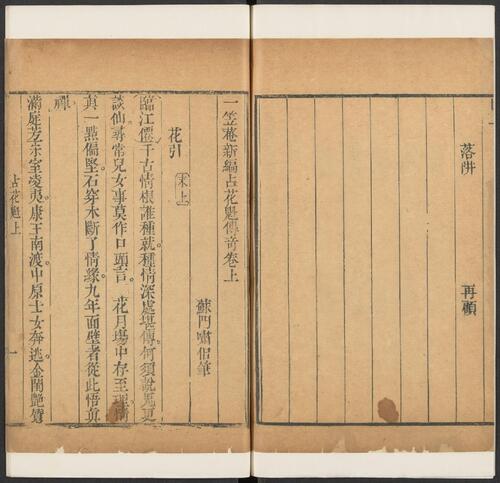 落阱 再顧
一笠菴新編占花魁傳奇卷上
蘇門嘯侶筆
花引 末上
臨江僊千古情根誰種就。種情深處堪傳。何須說鬼更
談仙。尋常兒女事莫作口頭言。 花月場中存至理情
真一點偏堅。石穿木斷了情緣。九年面壁者從此悟眞
禪
滿庭芳宋室凌夷。康王南渡。中原士女奔逃。金閨艶質
占花魁上 一